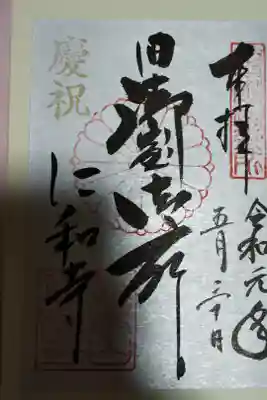 奉拝
令和元年
五月二十日
旧御室御所
仁和寺
慶祝